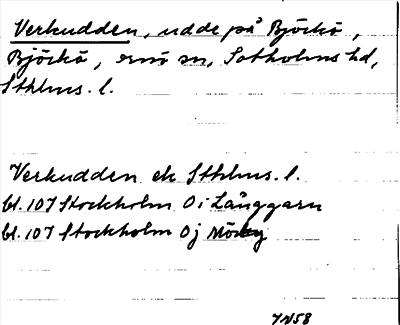 Verkudden, udde på Björkö,
Björkö, Arnö sn, Sotholms hd,
Sthlms. l.
Verkudden ek Sthlms. l.
bl. 107 Stockholm 0 i Långgarn
bl. 107 Stockholm 0 j Mörby
IN58